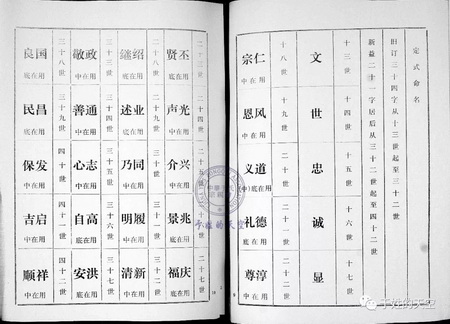 定式命名
旧订三十四字从十三世起至三十二世
新益二十一字居后从三十二世起至四十二世
十三世
文
十四世
世
十五世
忠
十六世
诚
十七世
显
十八世
宗仁
中在用
十九世
恩风
中在用
二十世
义道
(中)底在用
二十一世
礼德
底在用
二十二世
尊淳
中在用
二十三世
贤丕
底在用
二十四世
声光
中在用
二十五世
介兴
中在用
景兆
中在用
二十七世
福庆
中在用
二十八世
继绍
底在用
二十九世
述业
底在用
三十世
乃同
中在用
三十一世
明履
中在用
三十二世
清新
中在用
三十三世
敬政
中在用
三十四世
善通
中在用
三十五世
心志
中在用
三十六世
自高
底在用
三十七世
安洪
底在用
三十八世
良国
底在用
三十九世
民昌
底在用
四十世
保发
中在用
四十一世
吉启
中在用
四十二世
顺祥
中在用
于姓的天空
于姓的天空